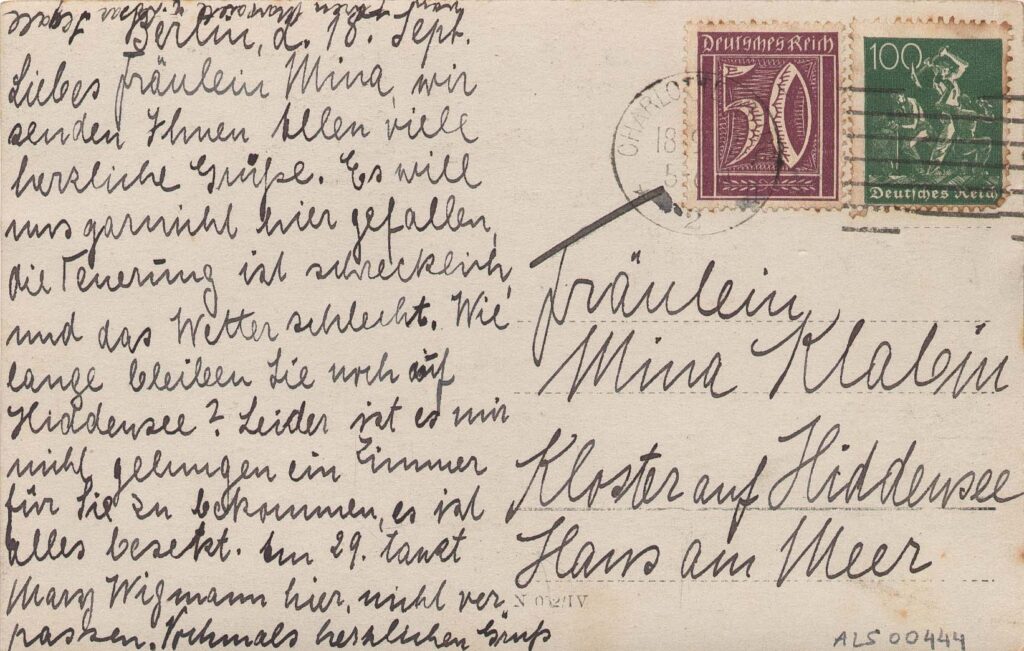 Berlin, d. 18. Sept.
Liebes Fräulein Mina, wir
senden Ihnen Allen viele
herzliche Grüße. Es will
uns garnicht hier gefallen,
die Teuerung ist schrecklich,
und das Wetter schlecht. Wie
lange bleiben Sie noch auf
Hiddensee? Leider ist es mir
nicht gelungen ein Zimmer
für Sie zu bekommen, es ist
alles besetzt. Am 29. tanzt
Mary Wigmann hier, nicht ver
passen. Nochmals herzlichen Gruß
von Ihren
Segall
Deutsches Reich
50
100
Deutsches Reich
CHARLOTT
18
5-
2
Fräulein
Mina Klabin
Kloster auf Hiddensee
Haus am Meer
N 052/IV
ALS 00444